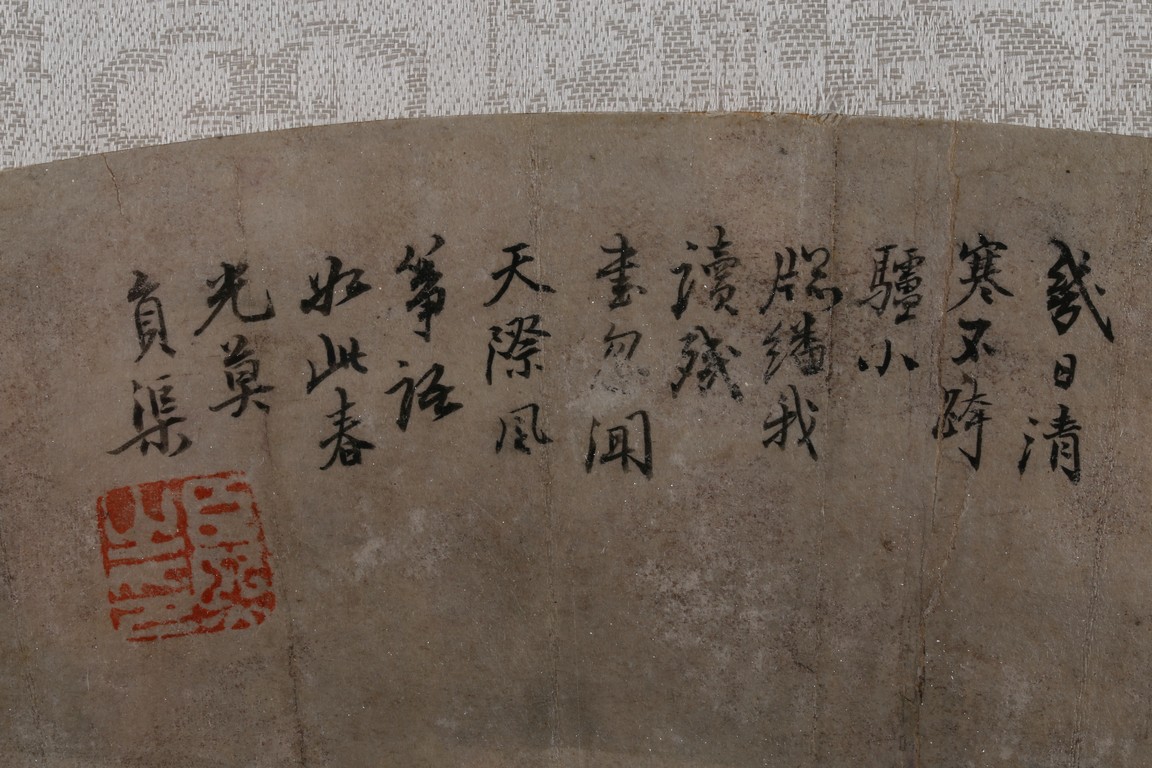 幾日清
寒不跨
驢小
牕繙我
讀殘
書忽聞
天際風
箏語
如此春
光莫
負渠